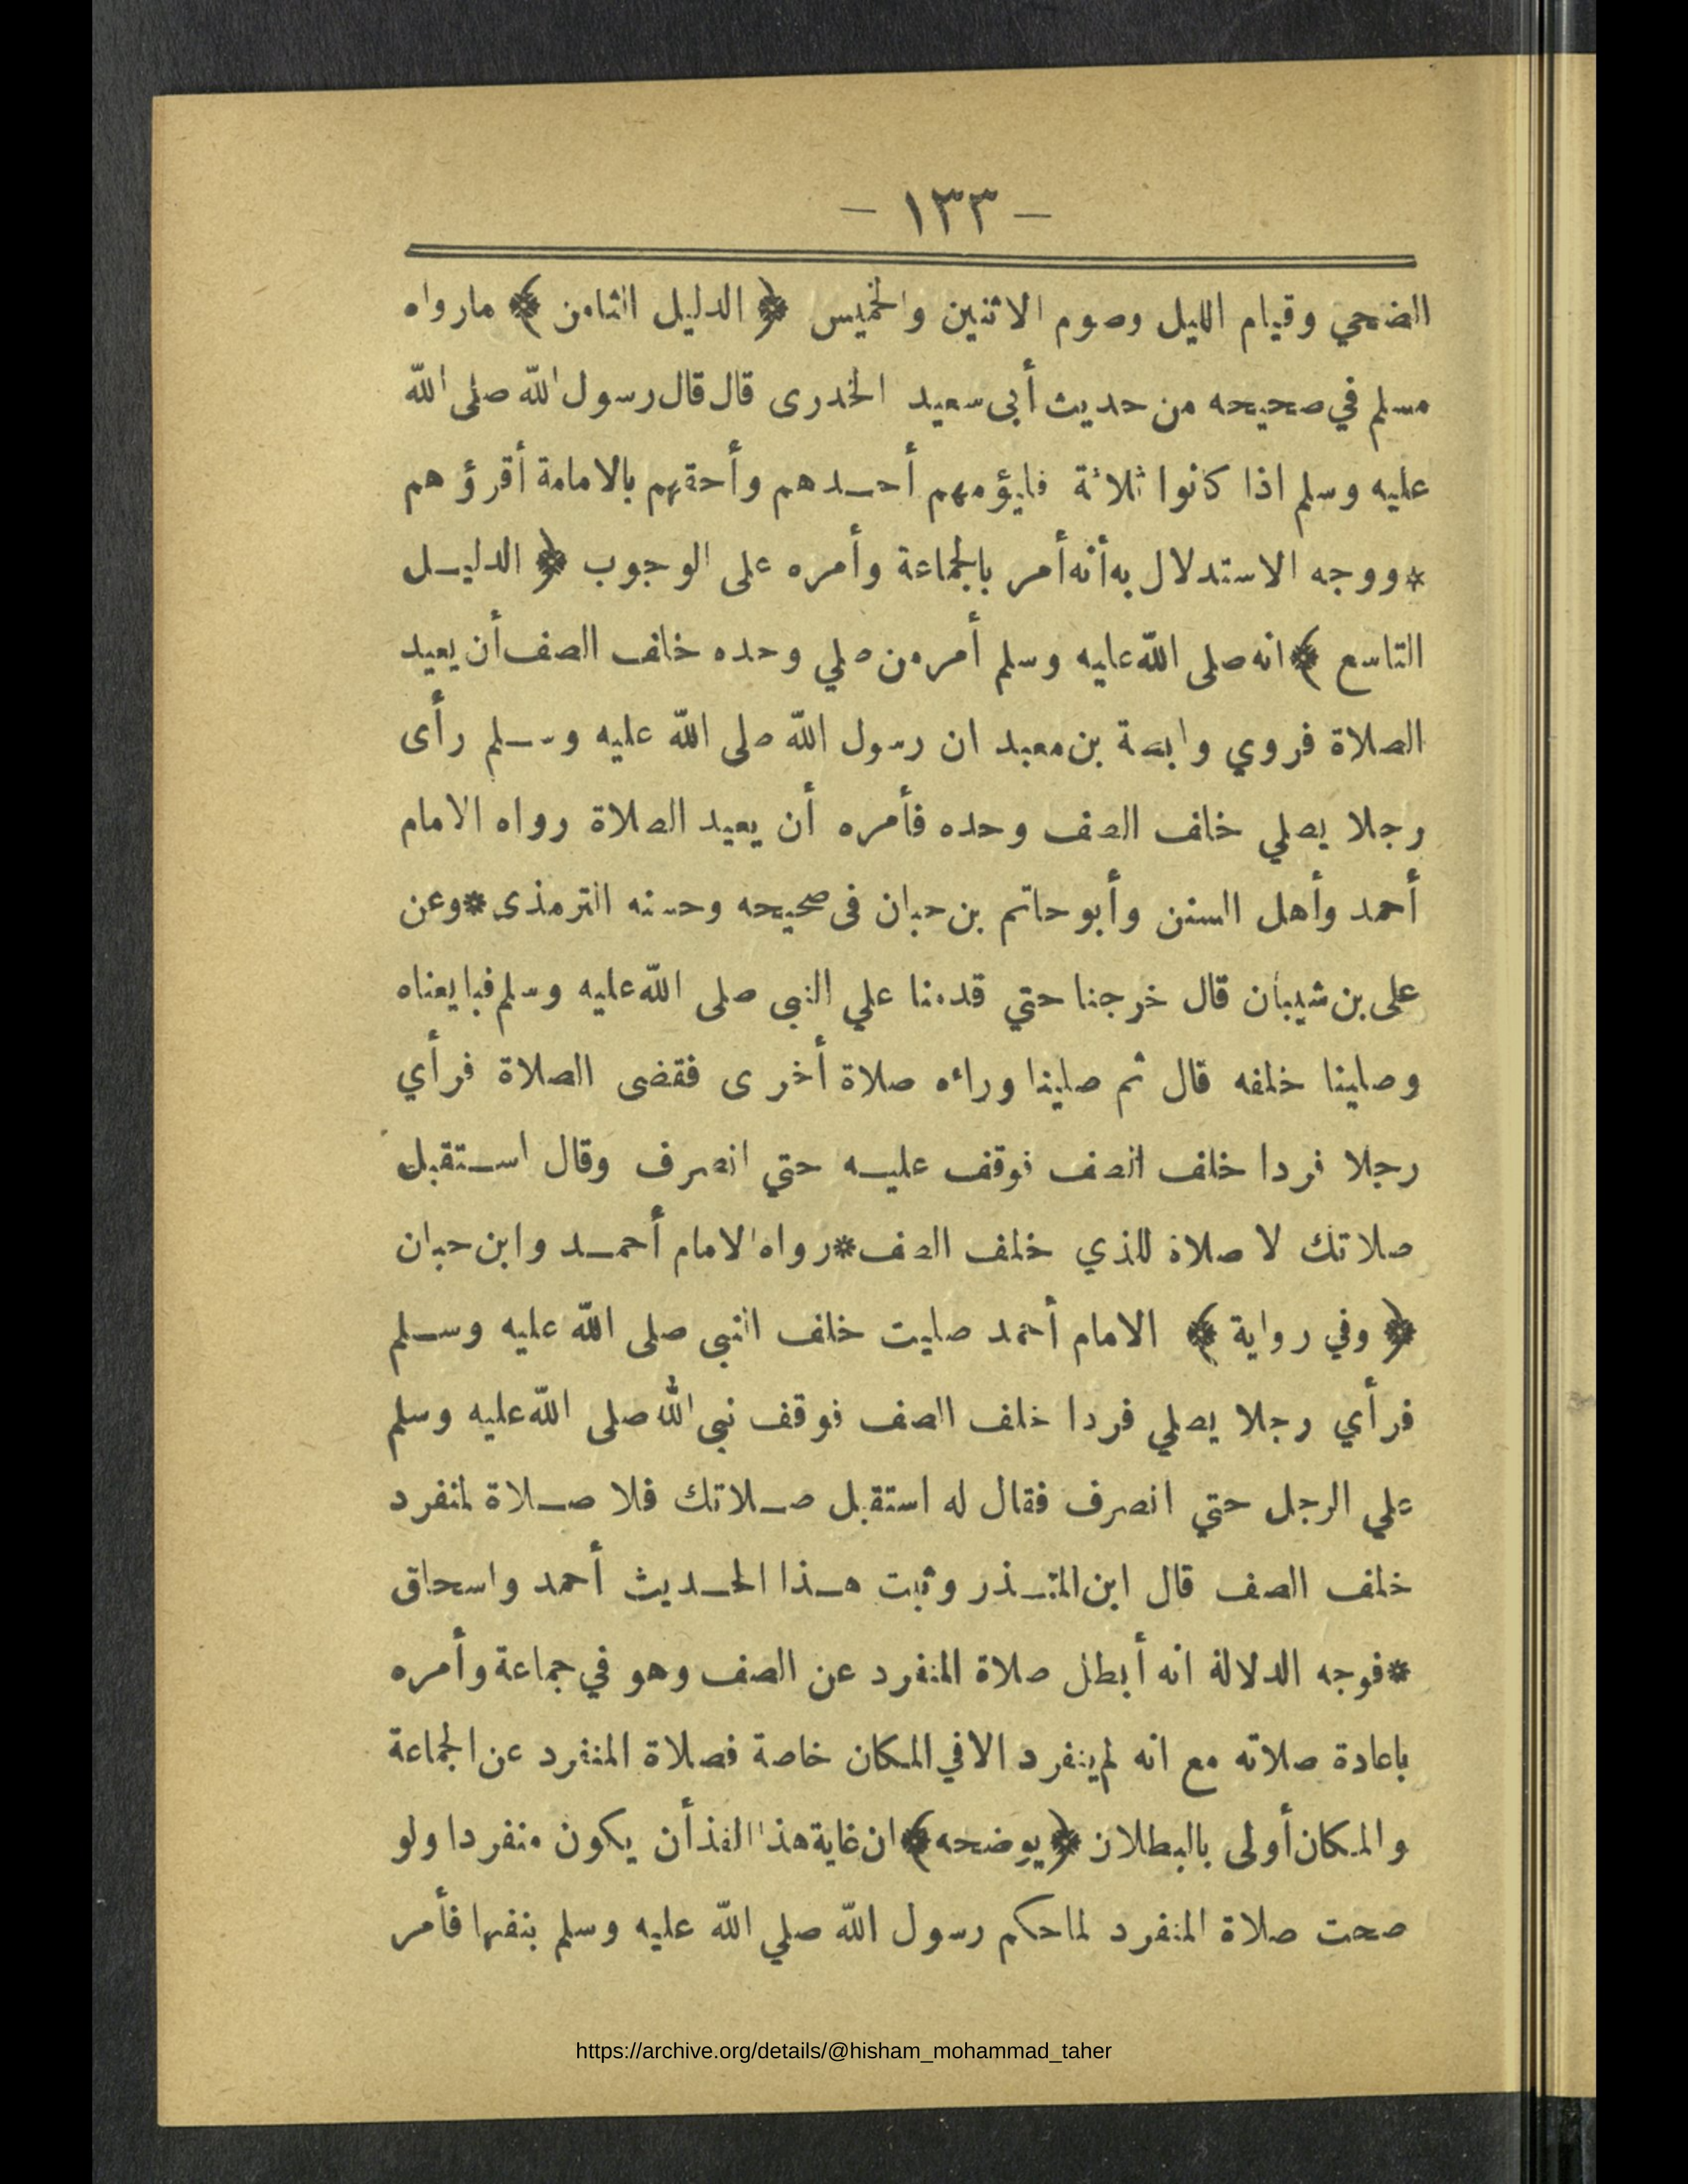 — ١٣٣ —
الضحي وقيام الليل وصوم الاثنين والخميس ﴿ الدليل الثامن ﴾ مارواه
مسلم في صحيحه من حديث أبى سعيد الخدرى قال قال رسول الله صلى الله
عليه وسلم اذا كانوا ثلاثة فليؤمهم أحدهم وأحقهم بالامامة أقرؤهم
*ووجه الاستدلال به أنه أمر بالجماعة وأمره على الوجوب ﴿ الدليل
التاسع ﴾ انه صلى الله عليه وسلم أمر من صلي وحده خلف الصف أن يعيد
الصلاة فروي وابصة بن معبد ان رسول الله صلى الله عليه وسلم رأى
رجلا يصلي خلف الصف وحده فأمره أن يعيد الصلاة رواه الامام
أحمد وأهل السنن وأبو حاتم بن حبان فى صحيحه وحسنه الترمذى*وعن
على بن شيبان قال خرجنا حتي قدمنا علي النبى صلى الله عليه وسلم فبايعناه
وصلينا خلفه قال ثم صلينا وراءه صلاة أخرى فقضى الصلاة فرأي
رجلا فردا خلف الصف فوقف عليه حتي انصرف وقال استقبل
صلاتك لا صلاة للذي خلف الصف*رواه الامام أحمد وابن حبان
﴿ وفي رواية ﴾ الامام أحمد صليت خلف النبى صلى الله عليه وسلم
فرأي رجلا يصلي فردا خلف الصف فوقف نبى الله صلى الله عليه وسلم
علي الرجل حتي انصرف فقال له استقبل صلاتك فلا صلاة لمنفرد
خلف الصف قال ابن المنذر وثبت هذا الحديث أحمد واسحاق
*فوجه الدلالة انه أبطل صلاة المنفرد عن الصف وهو في جماعة وأمره
باعادة صلاته مع انه لم ينفرد الا في المكان خاصة فصلاة المنفرد عن الجماعة
والمكان أولى بالبطلان ﴿يوضحه﴾ ان غاية هذا الفذ أن يكون منفردا ولو
صحت صلاة المنفرد لما حكم رسول الله صلي الله عليه وسلم بنفيها فأمر
https://archive.org/details/@hisham_mohammad_taher